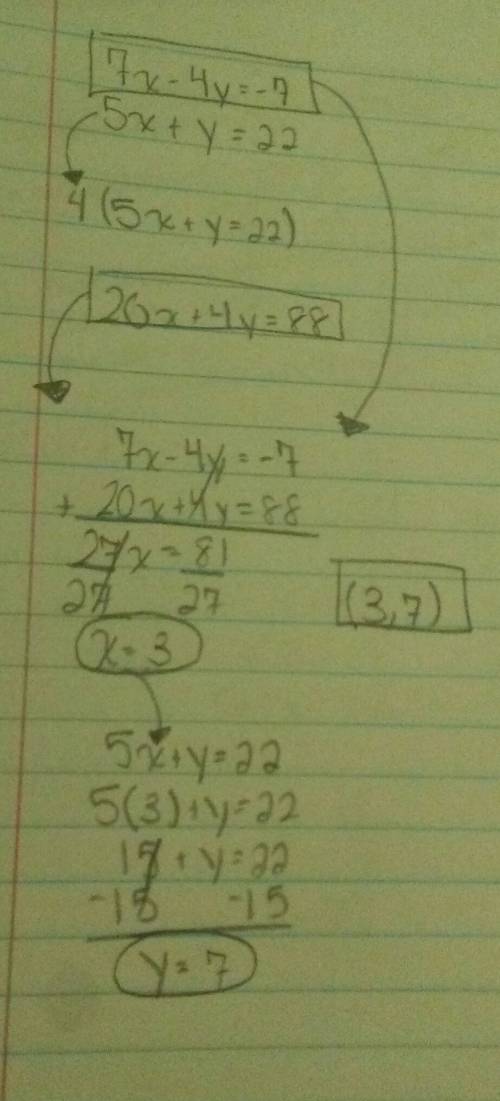 7x - 4y = -7
5x + y = 22
4(5x + y = 22)
20x + 4y = 88
7x - 4y = -7
+ 20x + 4y = 88
27x = 81
27 27
x = 3
(3,7)
5x + y = 22
5(3) + y = 22
15 + y = 22
-15 -15
y = 7